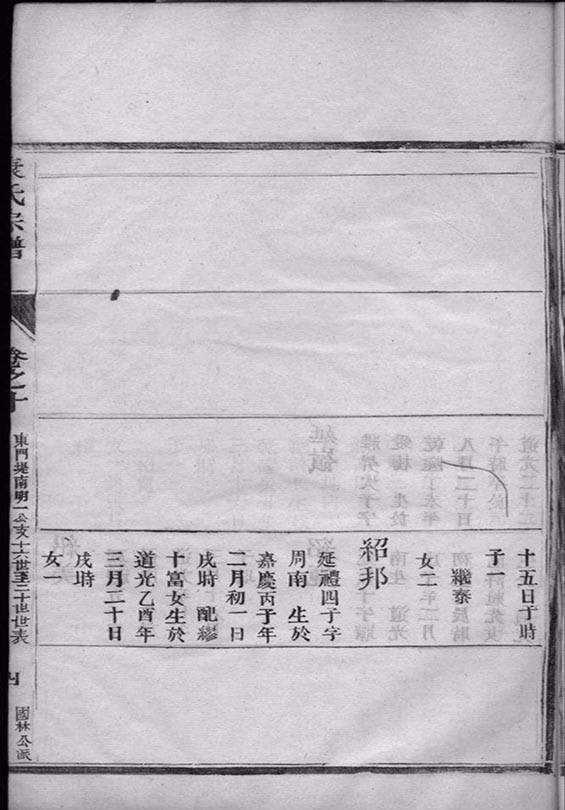 十五日子時
子
繼泰
女二
紹邦
延禮四子字
周南 生於
嘉慶丙子年
二月初一日
戌時 配繆
十富女生於
道光乙酉年
三月二十日
戌時
女一
袁氏宗譜
卷之十
東門堤南明一公支十六世至二十世世表
四
國林公派